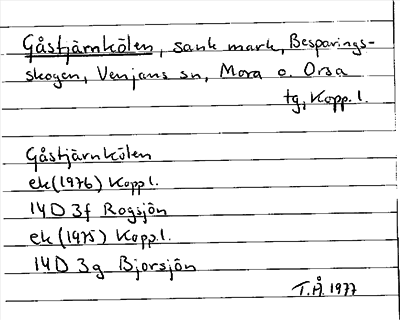 Gåstjärnkölen, sank mark, Besparings-
skogen, Venjans sn, Mora o. Orsa
tg, Kopp. l.
Gåstjärnkölen
ek (1976) Kopp l.
14 D 3f Rogsjön
ek (1975) Kopp.l.
14 D 3g Bjorsjön
T.Å. 1977